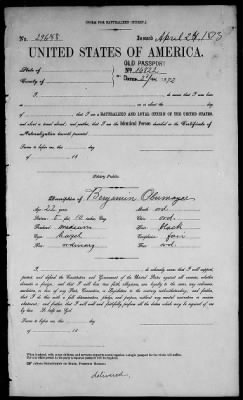 [FORM FOR NATURALIZED CITIZEN.]
No. 29648 Issued April 24, 1873
UNITED STATES OF AMERICA.
State of
County of
OLD PASSPORT
No.
Dated 1872
I, was born in
on or about the day
of ; that I am a NATURALIZED AND LOYAL CITIZEN OF THE UNITED STATES,
and about to travel abroad; and further, that I am the Identical Person described in the Certificate of
Naturalization herewith presented.
Sworn to before me, this day
of 18
Notary Public.
Description of Benjamin Obermayer
Age 22 years
Stature 5 ft. 10 inches Eng.
Forehead medium
Eyes Hazel
Nose ordinary
Mouth ord.
Chin ord.
Hair black
Complexion fair
Face ord.
I, do solemnly swear that I will support,
protect, and defend the Constitution and Government of the United States against all enemies, whether
domestic or foreign; and that I will bear true faith, allegiance, and loyalty to the same, any ordinance,
resolution, or law of any State, Convention, or Legislature to the contrary notwithstanding; and further,
that I do this with a full determination, pledge, and purpose, without any mental reservation or evasion
whatsoever; and further, that I will well and faithfully perform all the duties which may be required of
me by law: So help me God.
Sworn to before me, this day
of 18
delivered